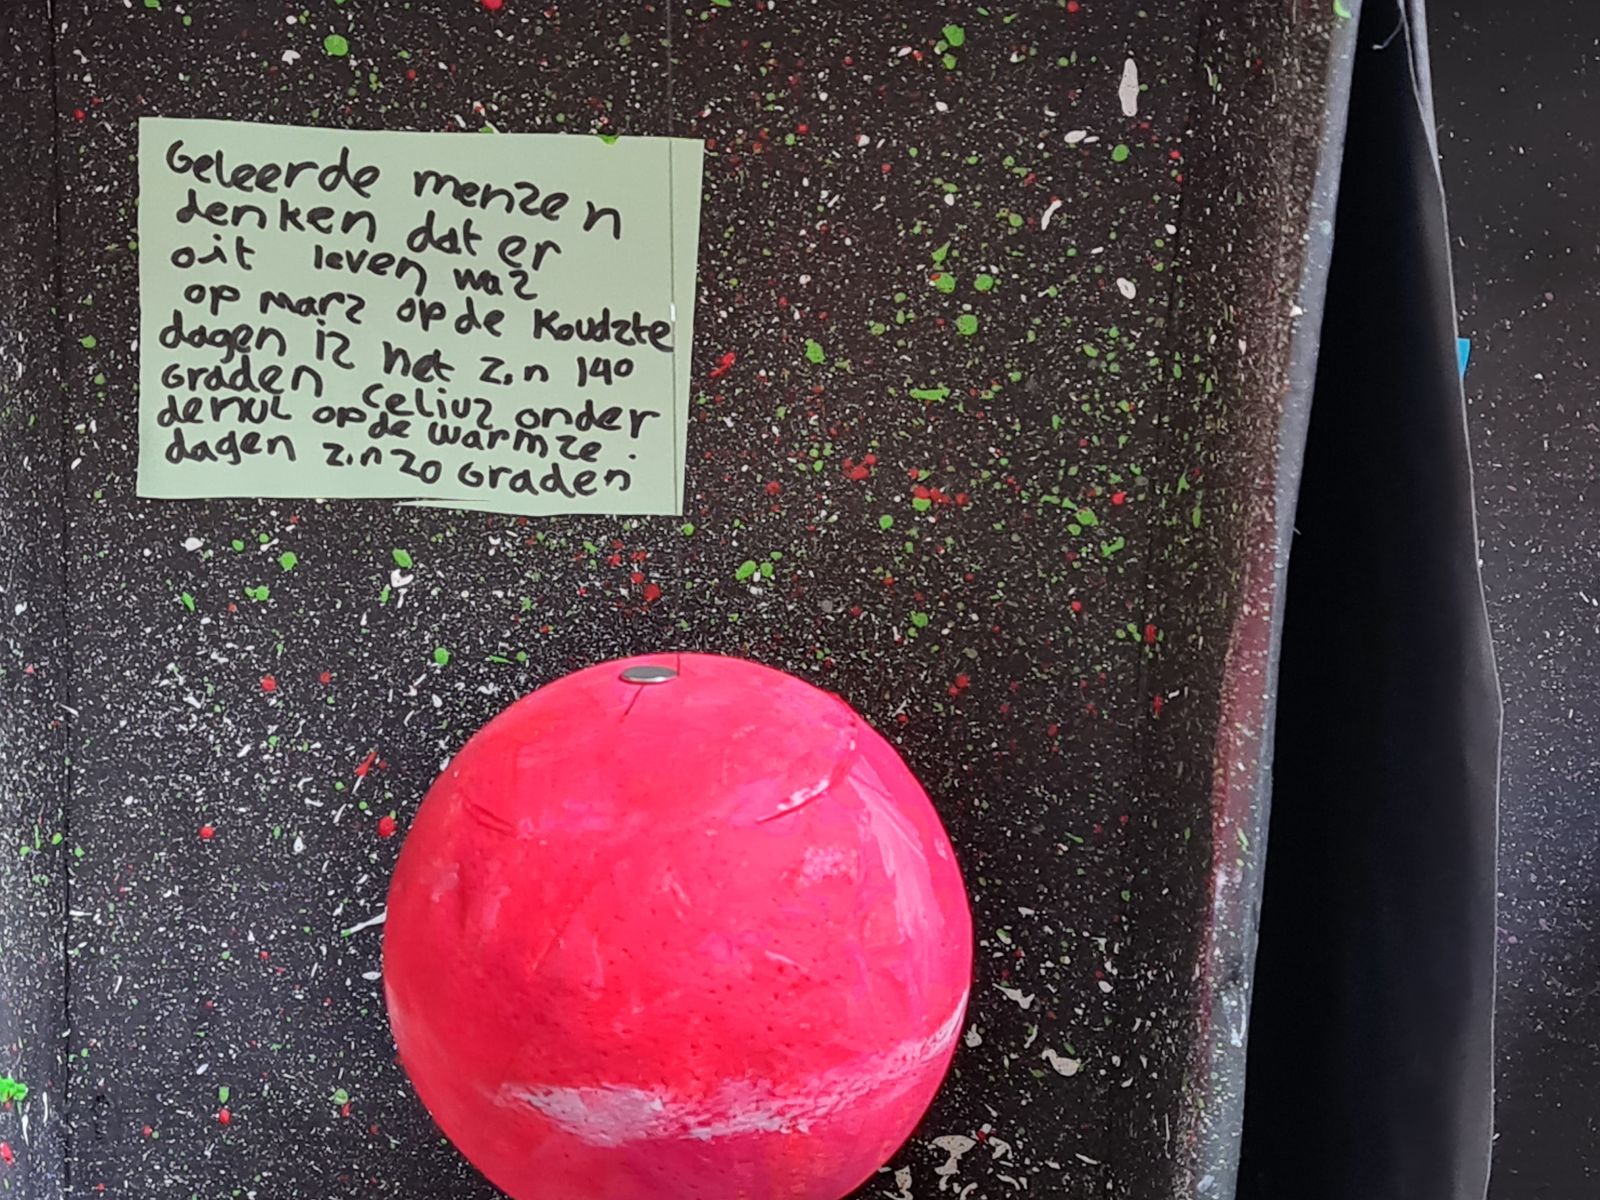 Geleerde menzen
denken dat er
oit leven waz
op marz op de Koudzte
dagen iz het z.n 140
Graden Celiuz onder
denul op de warmze.
dagen z.n 20 Graden